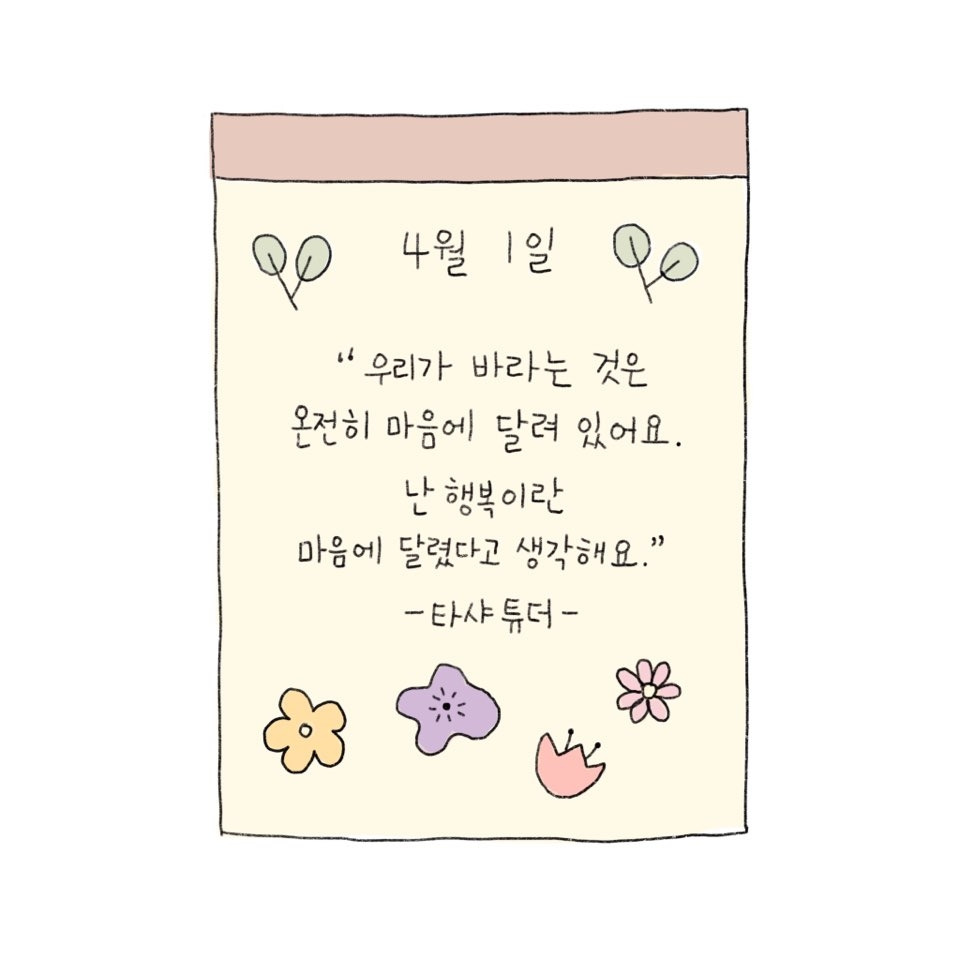 4월 1일
“우리가 바라는 것은
온전히 마음에 달려 있어요.
난 행복이란
마음에 달렸다고 생각해요.”
-타샤 튜더-